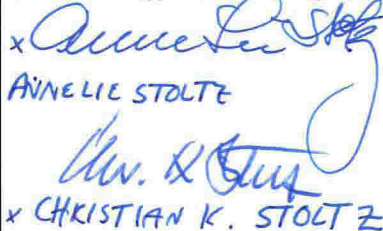 x Annelie Stoltz
ANNELIE STOLTZ
Chr. K Stoltz
x CHRISTIAN K. STOLTZ